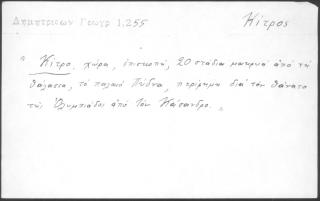 Δημητριεων Γεωγρ 1,255
Κίτρος
" Κίτρο, χώρα, ἐπισκοπή, 20 στάδια μακρυά ἀπό τή
θάλασσα, τό παλαιό Πύδνα, περίφημη διά τόν θάνατο
τῆς Ὀλυμπιάδος ἀπό τόν Κάσανδρο. "